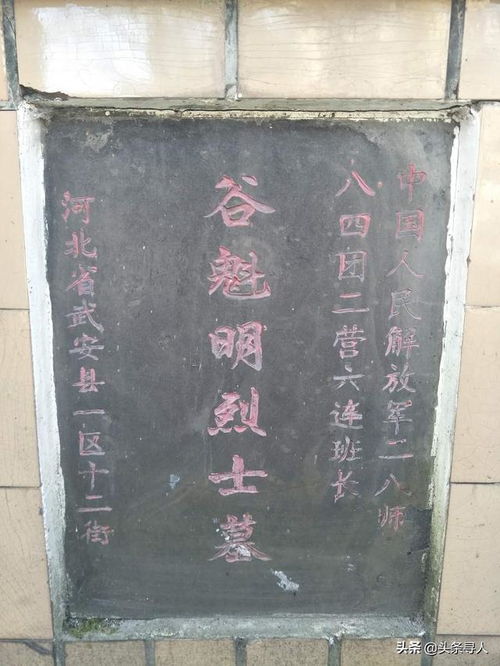 中国人民解放军二八师
八四团二营六连班长
谷魁明烈士墓
河北省武安县一区十二街
头条 @头条寻人